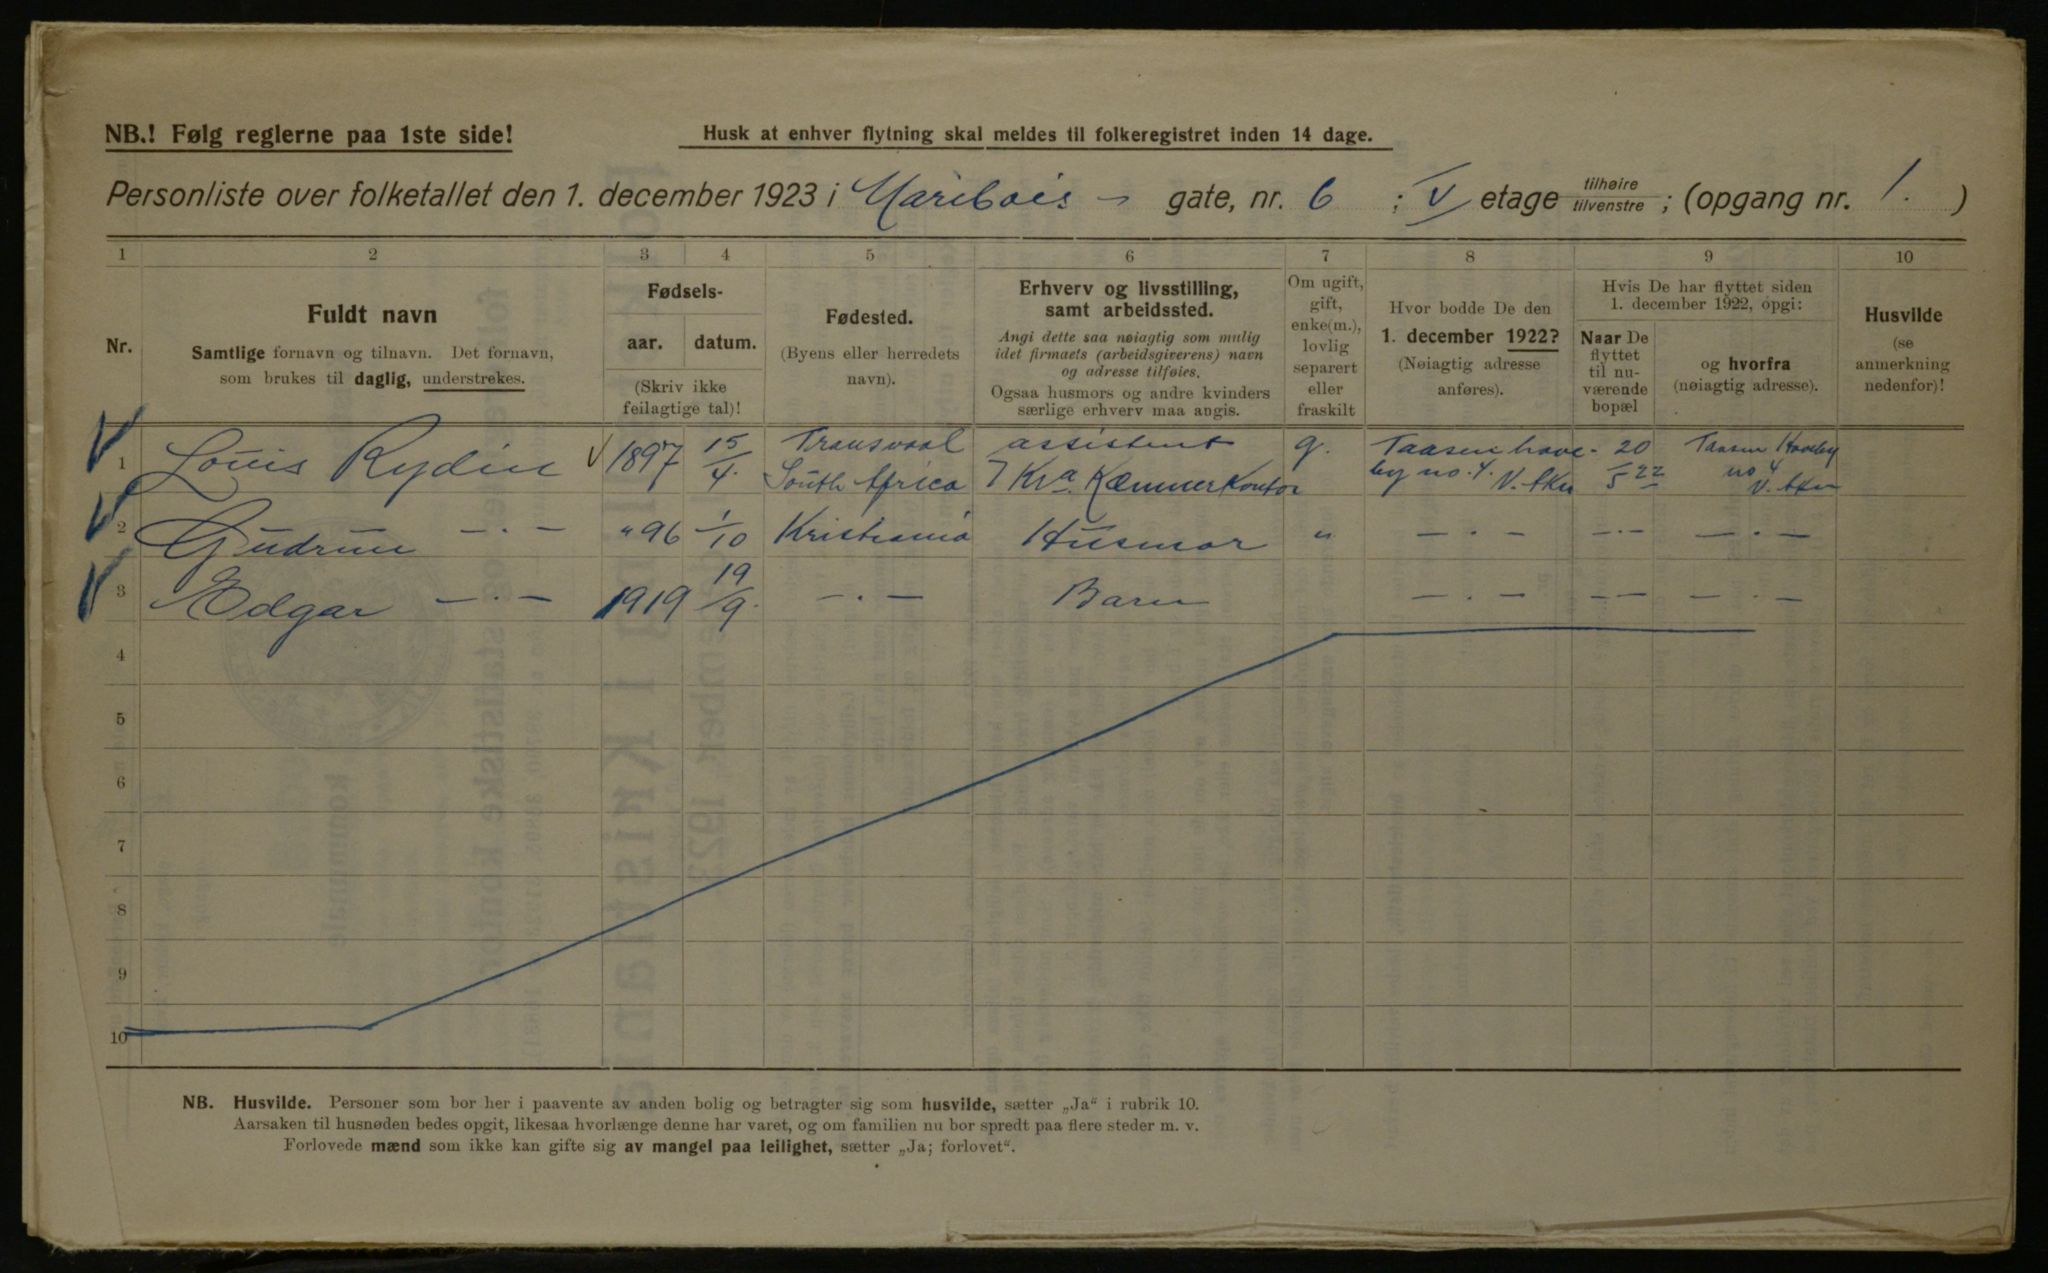 NB.! Følg reglerne paa 1ste side!
Husk at enhver flytning skal meldes til folkeregistret inden 14 dage.
Personliste over folketallet den 1. december 1923 i Maribois - gate, nr. 6 ; V etage tilhøire tilvenstre ; (opgang nr. 1. )
1 2 3 4 5 6 7 8 9 10
Nr.
Fuldt navn
Samtlige fornavn og tilnavn. Det fornavn,
som brukes til daglig, understrekes.
Fødsels-
aar. datum.
(Skriv ikke
feilagtige tal)!
Fødested.
(Byens eller herredets
navn).
Erhverv og livsstilling,
samt arbeidssted.
Angi dette saa nøiagtig som mulig
idet firmaets (arbeidsgiverens) navn
og adresse tilføies.
Ogsaa husmors og andre kvinders
særlige erhverv maa angis.
Om ugift,
gift,
enke(m.),
lovlig
separert
eller
fraskilt
Hvor bodde De den
1. december 1922?
(Nøiagtig adresse
anføres).
Hvis De har flyttet siden
1. december 1922, opgi:
Naar De
flyttet
til nu-
værende
bopæl
og hvorfra
(nøiagtig adresse).
Husvilde
(se
anmerkning
nedenfor)!
1 Louis Rydin 1897 15/4. Transvaal South Africa assistent Kra. Kæmnerkontor g. Taasen have- by no. 4. V. Aker 20/5 22 Taasen Haveby no 4 V. Aker
2 Gudrun — · — " 96 1/10 Kristiania Husmor " — · — — · — — · —
3 Edgar — · — 1919 19/9. — · — Barn — · — — — — · —
4
5
6
7
8
9
10
NB. Husvilde. Personer som bor her i paavente av anden bolig og betragter sig som husvilde, sætter „Ja“ i rubrik 10.
Aarsaken til husnøden bedes opgit, likesaa hvorlænge denne har varet, og om familien nu bor spredt paa flere steder m. v.
Forlovede mænd som ikke kan gifte sig av mangel paa leilighet, sætter „Ja; forlovet“.